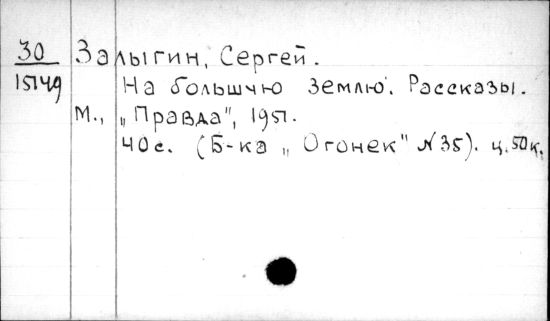 30 Залыгин, Сергей.
15149 На большую землю. Рассказы.
М., „Правда", 1951.
40с. (Б-ка „Огонек" № 35). ц. 50к.